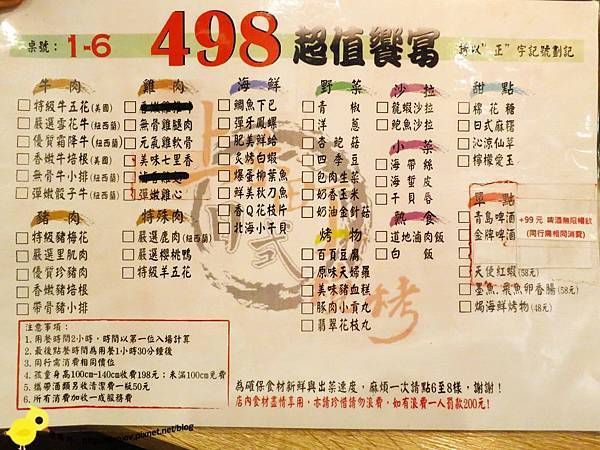 桌號：1-6
498 超值饗宴
請以"正"字記號劃記
牛肉
特級牛五花(美國)
嚴選雪花牛(紐西蘭)
優質霜降牛(紐西蘭)
香嫩牛培根(美國)
無骨牛小排(紐西蘭)
彈嫩骰子牛(紐西蘭)
豬肉
特級豬梅花
嚴選里肌肉
優質珍豬肉
香嫩豬培根
帶骨豬小排
雞肉
無骨雞腿肉
元氣雞軟骨
美味七里香
彈嫩雞心
特殊肉
嚴選鹿肉(紐西蘭)
嚴選櫻桃鴨
特級羊五花
海鮮
鯛魚下巴
彈牙鳳螺
肥美鮮蛤
炙烤白蝦
爆蛋柳葉魚
鮮美秋刀魚
香Q花枝片
北海小干貝
野菜
青椒
洋蔥
杏鮑菇
四季豆
包肉生菜
奶香玉米
奶油金針菇
烤物
百頁豆腐
原味天婦羅
美味豬血糕
豚肉小貢丸
翡翠花枝丸
沙拉
龍蝦沙拉
鮑魚沙拉
小菜
海帶絲
海蜇皮
干貝唇
熟食
道地滷肉飯
白飯
甜點
棉花糖
日式麻糬
沁涼仙草
檸檬愛玉
單點
青島啤酒
金牌啤酒
+99元 啤酒無限暢飲
(同行需相同消費)
天使紅蝦(58元)
墨魚、飛魚卵香腸(58元)
焗海鮮烤物(48元)
注意事項：
1.用餐時間2小時，時間以第一位入場計算
2.最後點餐時間為用餐1小時30分鐘後
3.同行需消費相同價位
4.孩童身高100cm-140cm收費198元；未滿100cm免費
5.攜帶酒類另收清潔費一瓶50元
6.所有消費加收一成服務費
為確保食材新鮮與出菜速度，麻煩一次請點6至8樣，謝謝！
店內食材盡情享用，亦請珍惜請勿浪費，如有浪費一人罰款200元！